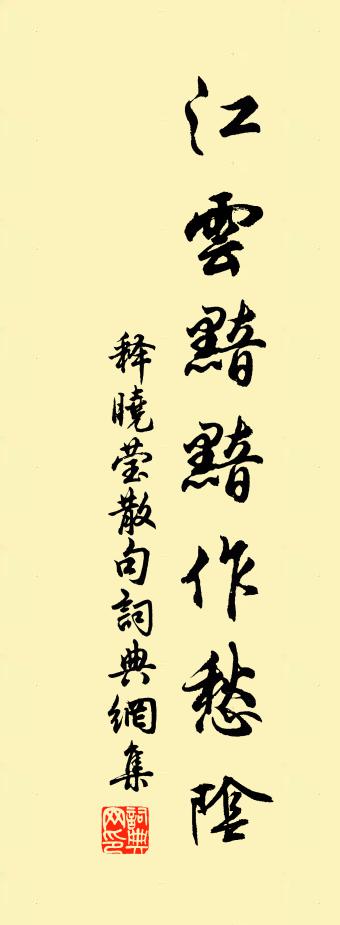 江雲黯黯作愁陰
释曉莹散句詞典網集
詞典网印